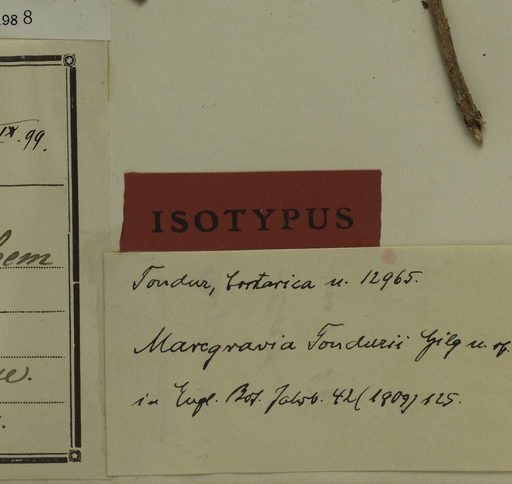 988
IX.99.
hem
ISOTYPUS
Tonduz, Costarica n. 12965.
Marcgravia Tonduzii Gilg n. sp.
in Engl. Bot. Jahrb. 42 (1909) 125.